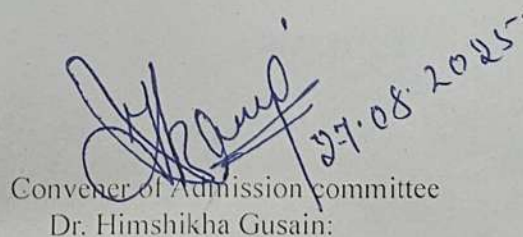 27.08.2025
Convener of Admission committee
Dr. Himshikha Gusain: